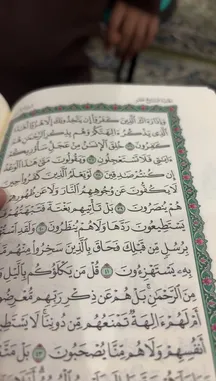 الجزء السابع عشر
وَإِذَا رَءَاكَ ٱلَّذِينَ كَفَرُوٓاْ إِن يَتَّخِذُونَكَ إِلَّا هُزُوًا أَهَٰذَا
ٱلَّذِي يَذۡكُرُ ءَالِهَتَكُمۡ وَهُم بِذِكۡرِ ٱلرَّحۡمَٰنِ هُمۡ
كَٰفِرُونَ ٣٦ خُلِقَ ٱلۡإِنسَٰنُ مِنۡ عَجَلٖ سَأُوْرِيكُمۡ
ءَايَٰتِي فَلَا تَسۡتَعۡجِلُونِ ٣٧ وَيَقُولُونَ مَتَىٰ هَٰذَا ٱلۡوَعۡدُ
إِن كُنتُمۡ صَٰدِقِينَ ٣٨ لَوۡ يَعۡلَمُ ٱلَّذِينَ كَفَرُواْ حِينَ
لَا يَكُفُّونَ عَن وُجُوهِهِمُ ٱلنَّارَ وَلَا عَن ظُهُورِهِمۡ
هُمۡ يُنصَرُونَ ٣٩ بَلۡ تَأۡتِيهِم بَغۡتَةٗ فَتَبۡهَتُهُمۡ
يَسۡتَطِيعُونَ رَدَّهَا وَلَا هُمۡ يُنظَرُونَ ٤٠ وَلَقَدِ
بِرُسُلٖ مِّن قَبۡلِكَ فَحَاقَ بِٱلَّذِينَ سَخِرُواْ مِنۡهُم
بِهِۦ يَسۡتَهۡزِءُونَ ٤١ قُلۡ مَن يَكۡلَؤُكُم بِٱلَّيۡلِ
مِنَ ٱلرَّحۡمَٰنِۚ بَلۡ هُمۡ عَن ذِكۡرِ رَبِّهِم مُّعۡرِضُونَ
أَمۡ لَهُمۡ ءَالِهَةٞ تَمۡنَعُهُم مِّن دُونِنَاۚ لَا يَسۡتَطِيعُونَ
أَنفُسِهِمۡ وَلَا هُم مِّنَّا يُصۡحَبُونَ ٤٣ بَلۡ